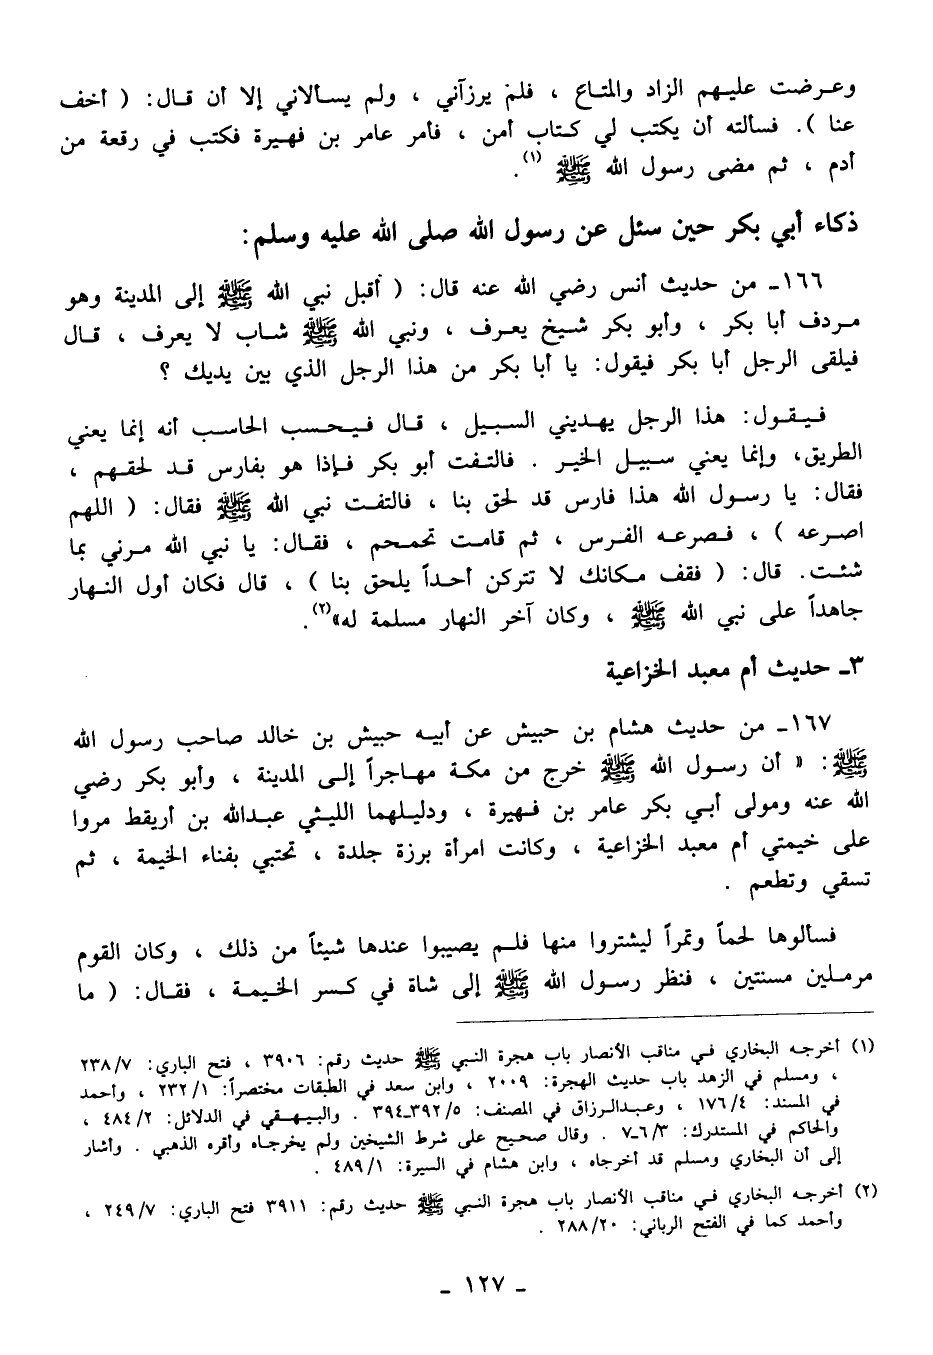 وعرضت عليهم الزاد والمتاع ، فلم يرزآني ، ولم يسألاني إلا أن قال: ( أخف
عنا ). فسألته أن يكتب لي كتاب أمن ، فأمر عامر بن فهيرة فكتب في رقعة من
أدم ، ثم مضى رسول الله ﷺ (١).
ذكاء أبي بكر حين سئل عن رسول الله صلى الله عليه وسلم:
١٦٦ـ من حديث أنس رضي الله عنه قال: ( أقبل نبي الله ﷺ إلى المدينة وهو
مردف أبا بكر ، وأبو بكر شيخ يعرف ، ونبي الله ﷺ شاب لا يعرف ، قال
فيلقى الرجل أبا بكر فيقول: يا أبا بكر من هذا الرجل الذي بين يديك ؟
فيقول: هذا الرجل يهديني السبيل ، قال فيحسب الحاسب أنه إنما يعني
الطريق، وإنما يعني سبيل الخير . فالتفت أبو بكر فإذا هو بفارس قد لحقهم ،
فقال: يا رسول الله هذا فارس قد لحق بنا ، فالتفت نبي الله ﷺ فقال: ( اللهم
اصرعه ) ، فصرعه الفرس ، ثم قامت تحمحم ، فقال: يا نبي الله مرني بما
شئت. قال: ( فقف مكانك لا تتركن أحداً يلحق بنا ) ، قال فكان أول النهار
جاهداً على نبي الله ﷺ ، وكان آخر النهار مسلمة له»(٢).
٣ـ حديث أم معبد الخزاعية
١٦٧ـ من حديث هشام بن حبيش عن أبيه حبيش بن خالد صاحب رسول الله
ﷺ: « أن رسول الله ﷺ خرج من مكة مهاجراً إلى المدينة ، وأبو بكر رضي
الله عنه ومولى أبي بكر عامر بن فهيرة ، ودليلهما الليثي عبدالله بن أريقط مروا
على خيمتي أم معبد الخزاعية ، وكانت امرأة برزة جلدة ، تحتبي بفناء الخيمة ، ثم
تسقي وتطعم .
فسألوها لحماً وتمراً ليشتروا منها فلم يصيبوا عندها شيئاً من ذلك ، وكان القوم
مرملين مسنتين ، فنظر رسول الله ﷺ إلى شاة في كسر الخيمة ، فقال: ( ما
(١) أخرجه البخاري في مناقب الأنصار باب هجرة النبي ﷺ حديث رقم: ٣٩٠٦ ، فتح الباري: ٢٣٨/٧
، ومسلم في الزهد باب حديث الهجرة: ٢٠٠٩ ، وابن سعد في الطبقات مختصراً: ٢٣٢/١ ، وأحمد
في المسند: ١٧٦/٤ ، وعبدالرزاق في المصنف: ٣٩٢/٥ـ٣٩٤ . والبيهقي في الدلائل: ٤٨٤/٢ ،
والحاكم في المستدرك: ٦/٣ـ٧ . وقال صحيح على شرط الشيخين ولم يخرجاه وأقره الذهبي . وأشار
إلى أن البخاري ومسلم قد أخرجاه ، وابن هشام في السيرة: ٤٨٩/١ .
(٢) أخرجه البخاري في مناقب الأنصار باب هجرة النبي ﷺ حديث رقم: ٣٩١١ فتح الباري: ٢٤٩/٧ ،
وأحمد كما في الفتح الرباني: ٢٨٨/٢٠ .
ـ ١٢٧ ـ